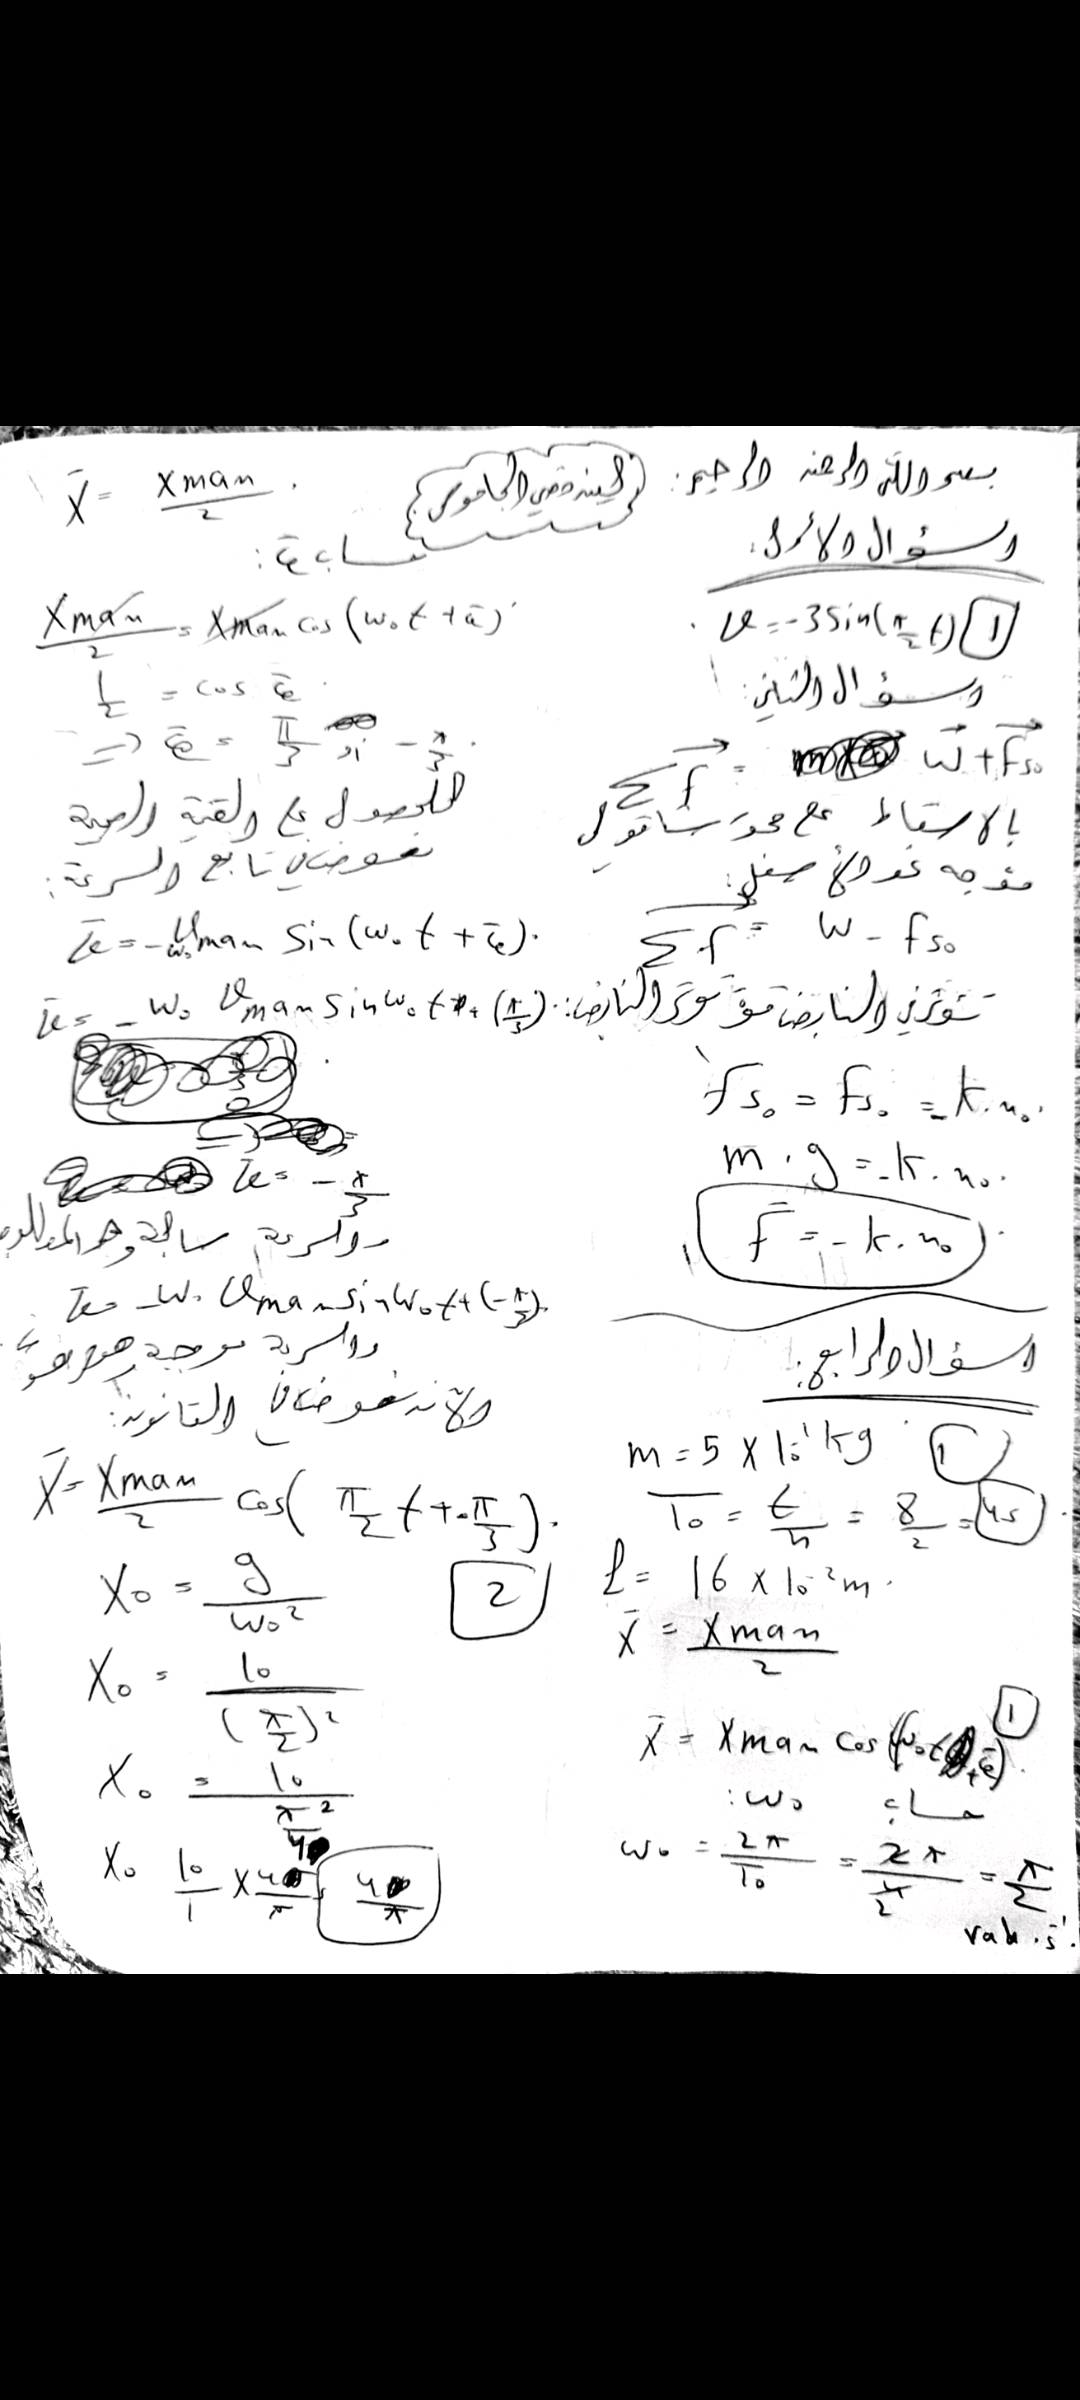 بسم الله الرحمن الرحيم:
السؤال الأول:
v = -3 sin(π/2 t) 1
السؤال الثاني:
Σf = w + fs₀
بالاسقاط على محور شاقولي
موجه نحو الأسفل:
Σf = w - fs₀
تؤثر في النابض قوة توتر النابض:
f's₀ = fs₀ = k.x₀.
m.g = -k.x₀.
f = -k.x₀
السؤال الرابع:
m = 5 x 10⁻¹ kg 1
T₀ = t/n = 8/2 = 4s
l = 16 x 10⁻² m.
x̄ = xmax/2
1
x̄ = xmax cos(w₀t + φ̄).
حساب w₀:
w₀ = 2π/T₀ = 2π/4 = π/2
rad.s⁻¹.
x̄ = xmax/2 .
حساب φ̄:
xmax/2 = xmax cos(w₀t + φ̄)
1/2 = cos φ̄
=> φ̄ = π/3 أو -π/3.
للحصول على القيمة
نعوض في تابع السرعة:
v̄ = -w₀ vmax sin(w₀t + φ̄).
v̄ = -w₀ vmax sin w₀t + (π/3).
φ̄ = -π/3
والسرعة سالبة
v̄ = -w₀ vmax sin w₀t + (-π/3).
والسرعة موجبة
الآن نعوض في القانون:
x̄ = xmax/2 cos(π/2 t + π/3).
2
x₀ = g/w₀²
x₀ = 10/(π/2)²
x₀ = 10/π²/4
x₀ 10/1 x 40/π 40/π